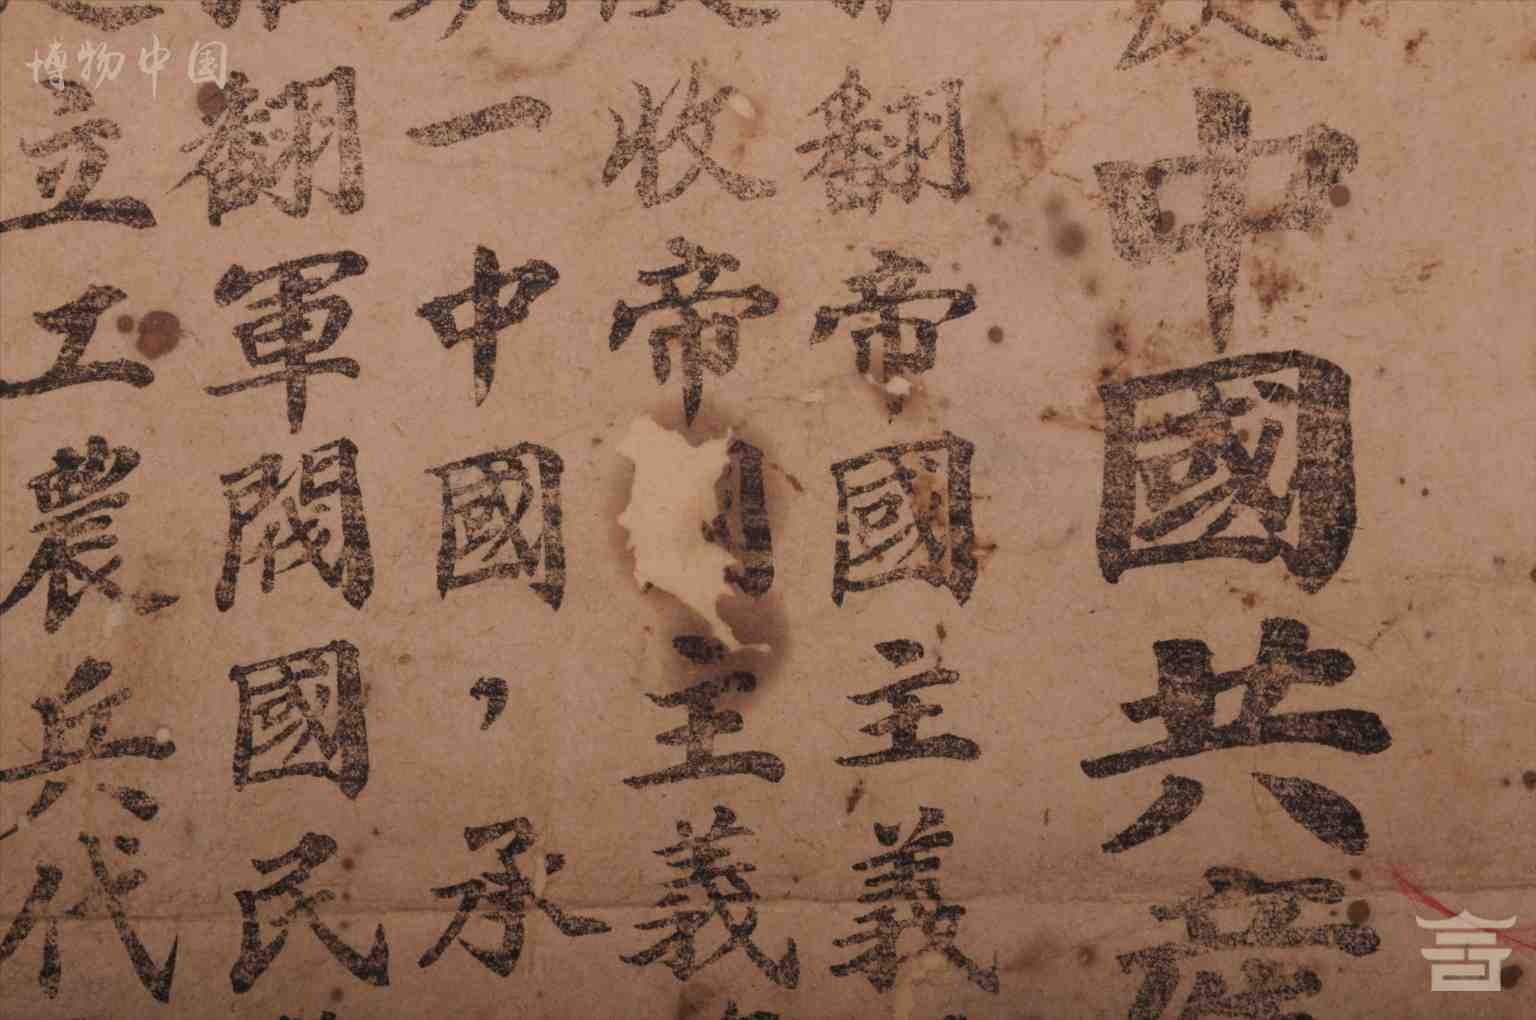 中國共產
翻帝國主義
收帝　主義
一中國，承
翻軍閥國民
立工農兵代
博物中国